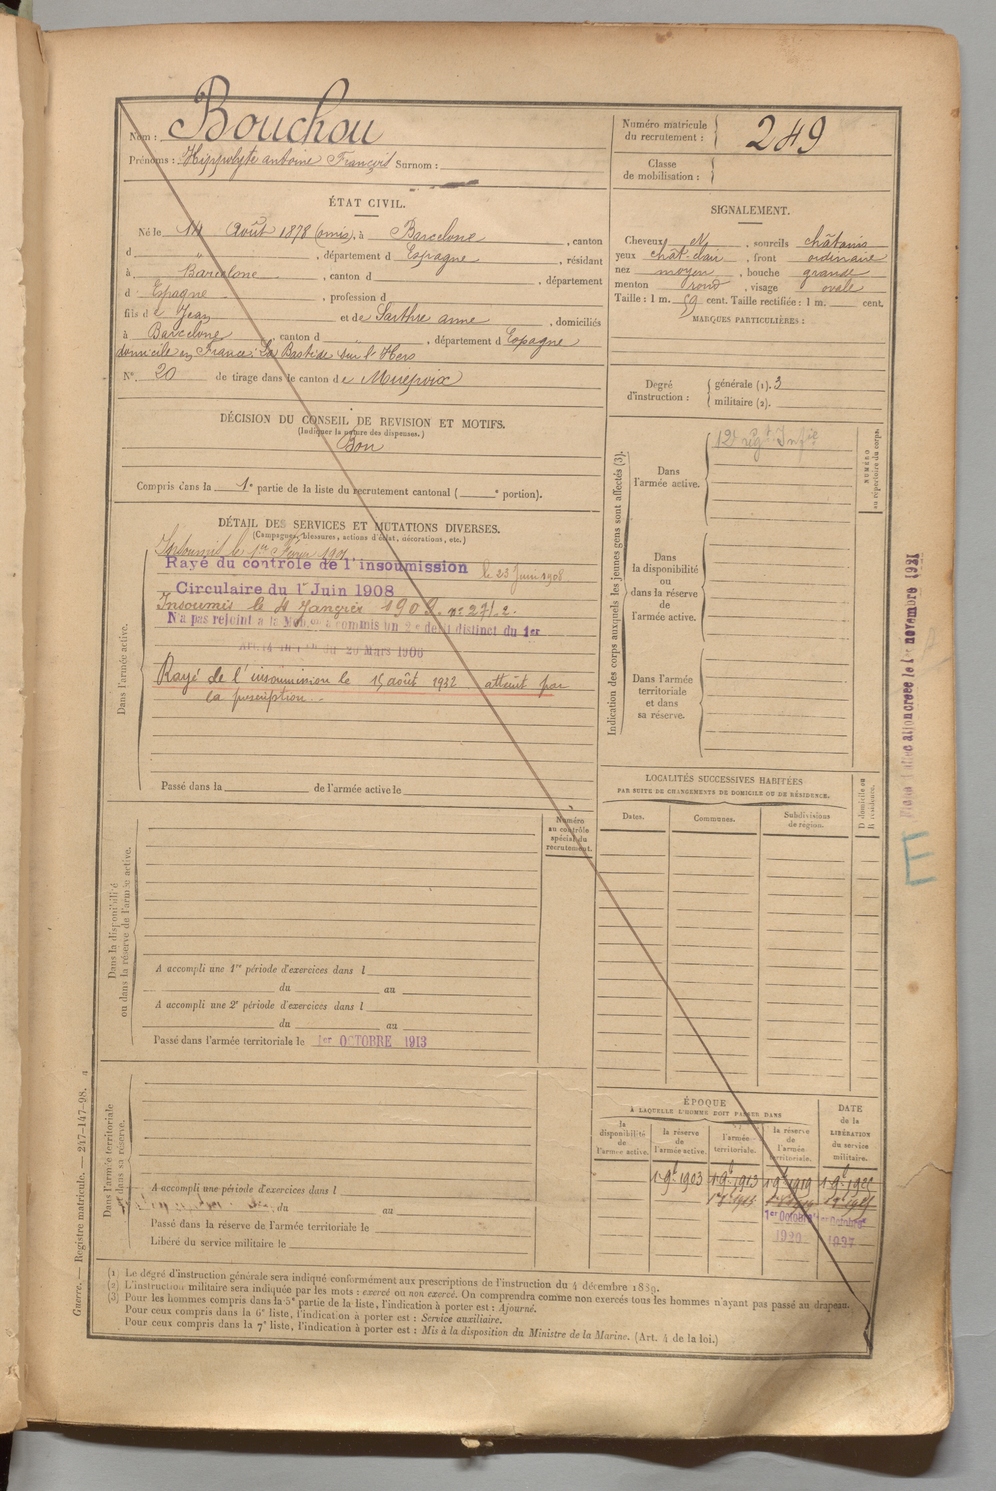 Nom : Bouchou
Prénoms : Hippolyte antoine François Surnom :
Numéro matricule du recrutement : 249
Classe de mobilisation :
ÉTAT CIVIL.
Né le 14 Août 1878 (omis), à Barcelone, canton
d , département d Espagne, résidant
à Barcelone, canton d , département
d Espagne, profession d
fils de Jean et de Sarthre anne, domiciliés
à Barcelone canton d " , département d Espagne
domicile en France: La Bastide sur l'Hers
N° 20 de tirage dans le canton de Mirepoix
SIGNALEMENT.
Cheveux et , sourcils châtains
yeux chât. clair, front ordinaire
nez moyen, bouche grande
menton rond, visage ovale
Taille : 1 m. 59 cent. Taille rectifiée : 1 m. cent.
MARQUES PARTICULIÈRES :
Degré d'instruction : générale (1). 3
militaire (2).
DÉCISION DU CONSEIL DE REVISION ET MOTIFS.
(Indiquer la nature des dispenses.)
Bon
Compris dans la 1e partie de la liste du recrutement cantonal ( e portion).
DÉTAIL DES SERVICES ET MUTATIONS DIVERSES.
(Campagnes, blessures, actions d'éclat, décorations, etc.)
Dans l'armée active.
Insoumis le 1er
Rayé du contrôle de l'insoumission le 23 Juin 1908
Circulaire du 1r Juin 1908
Insoumis le 4 Janvier 1902. n° 271.2.
N'a pas rejoint a la a commis un 2e délit distinct du 1er
20 Mars 1906
Rayé de l'insoumission le 15 août 1932 atteint par
la prescription.
Passé dans la de l'armée active le
Indication des corps auxquels les jeunes gens sont affectés (3).
Dans l'armée active.
12e régt Infie
NUMÉRO au répertoire du corps.
Dans la disponibilité ou dans la réserve de l'armée active.
Dans l'armée territoriale et dans sa réserve.
LOCALITÉS SUCCESSIVES HABITÉES
PAR SUITE DE CHANGEMENTS DE DOMICILE OU DE RÉSIDENCE.
Dates.
Communes.
Subdivisions de région.
D domicile ou R résidence.
le 1er novembre 1931
E
Dans la disponibilité ou dans la réserve de l'armée active.
Numéro au contrôle spécial du recrutement.
A accompli une 1re période d'exercices dans l
du au
A accompli une 2e période d'exercices dans l
du au
Passé dans l'armée territoriale le 1er OCTOBRE 1913
Dans l'armée territoriale et dans sa réserve.
A accompli une période d'exercices dans l
du au
Passé dans la réserve de l'armée territoriale le
Libéré du service militaire le
ÉPOQUE
À LAQUELLE L'HOMME DOIT PASSER DANS
DATE de la LIBÉRATION du service militaire.
la disponibilité de l'armée active.
la réserve de l'armée active.
l'armée territoriale.
la réserve de l'armée territoriale.
1 9e 1903
1 9e 1913
1 9e 1919
1er Octobre
1er Octobre
1920
1927
(1) Le degré d'instruction générale sera indiqué conformément aux prescriptions de l'instruction du 4 décembre 1889.
(2) L'instruction militaire sera indiquée par les mots : exercé ou non exercé. On comprendra comme non exercés tous les hommes n'ayant pas passé au drapeau.
(3) Pour les hommes compris dans la 5e partie de la liste, l'indication à porter est : Ajourné.
Pour ceux compris dans la 6e liste, l'indication à porter est : Service auxiliaire.
Pour ceux compris dans la 7e liste, l'indication à porter est : Mis à la disposition du Ministre de la Marine. (Art. 4 de la loi.)
Guerre. — Registre matricule. — 247-147-98.